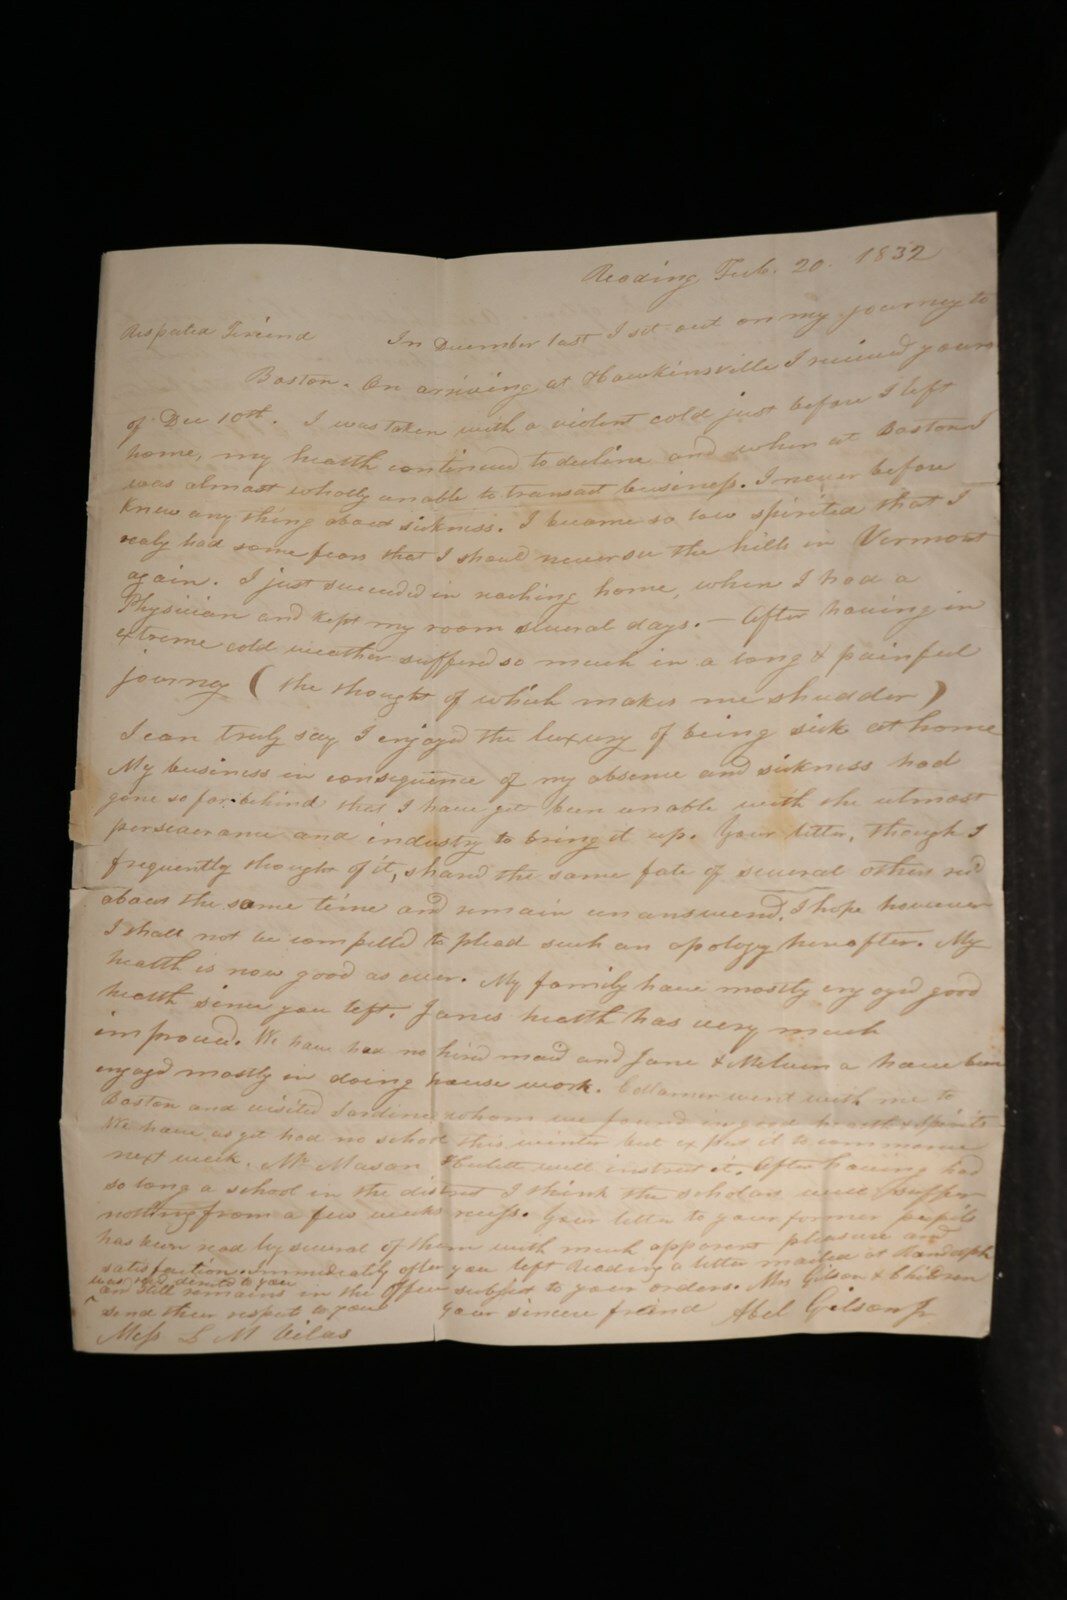 Reading Feb. 20. 1832
Respected Friend In December last I set out on my journey to
Boston. On arriving at Hawkinsville I received yours
of Dec 10th. I was taken with a violent cold just before I left
home, my health continued to decline and when at Boston I
was almost wholly unable to transact business. I never before
knew any thing about sickness. I became so low spirited that I
realy had some fears that I should never see the hills in Vermont
again. I just succeeded in reaching home, when I had a
Physician and kept my room several days. — After having in
extreme cold weather suffered so much in a long & painful
journey ( the thought of which makes me shudder )
I can truly say I enjoyed the luxury of being sick at home
My business in consequence of my absence and sickness had
gone so far behind that I have yet been unable with the utmost
perseverance and industry to bring it up. Your letter, though I
frequently thought of it, shared the same fate of several others recd
about the same time and remain unanswered. I hope however
I shall not be compelled to plead such an apology hereafter. My
health is now good as ever. My family have mostly enjoyed good
health since you left. Janes health has very much
improved. We have had no hired maid and Jane & Melvina have been
engaged mostly in doing house work. Collamer went with me to
Boston and visited Sardine whom we found in good health & spirits
We have as yet had no school this winter but expect it to commence
next week. Mr Mason Hulett will instruct it. After having had
so long a school in the district I think the scholars will suffer
nothing from a few weeks recess. Your letter to your former pupils
has been read by several of them with much apparent pleasure and
satisfaction. immediately after you left Reading a letter mailed at Randolph
was recd directed to you
an still remains in the office subject to your orders. Mrs Gilson & Children
send their respects to you Your sincere friend Abel Gilson Jr
Miss L M Vilas